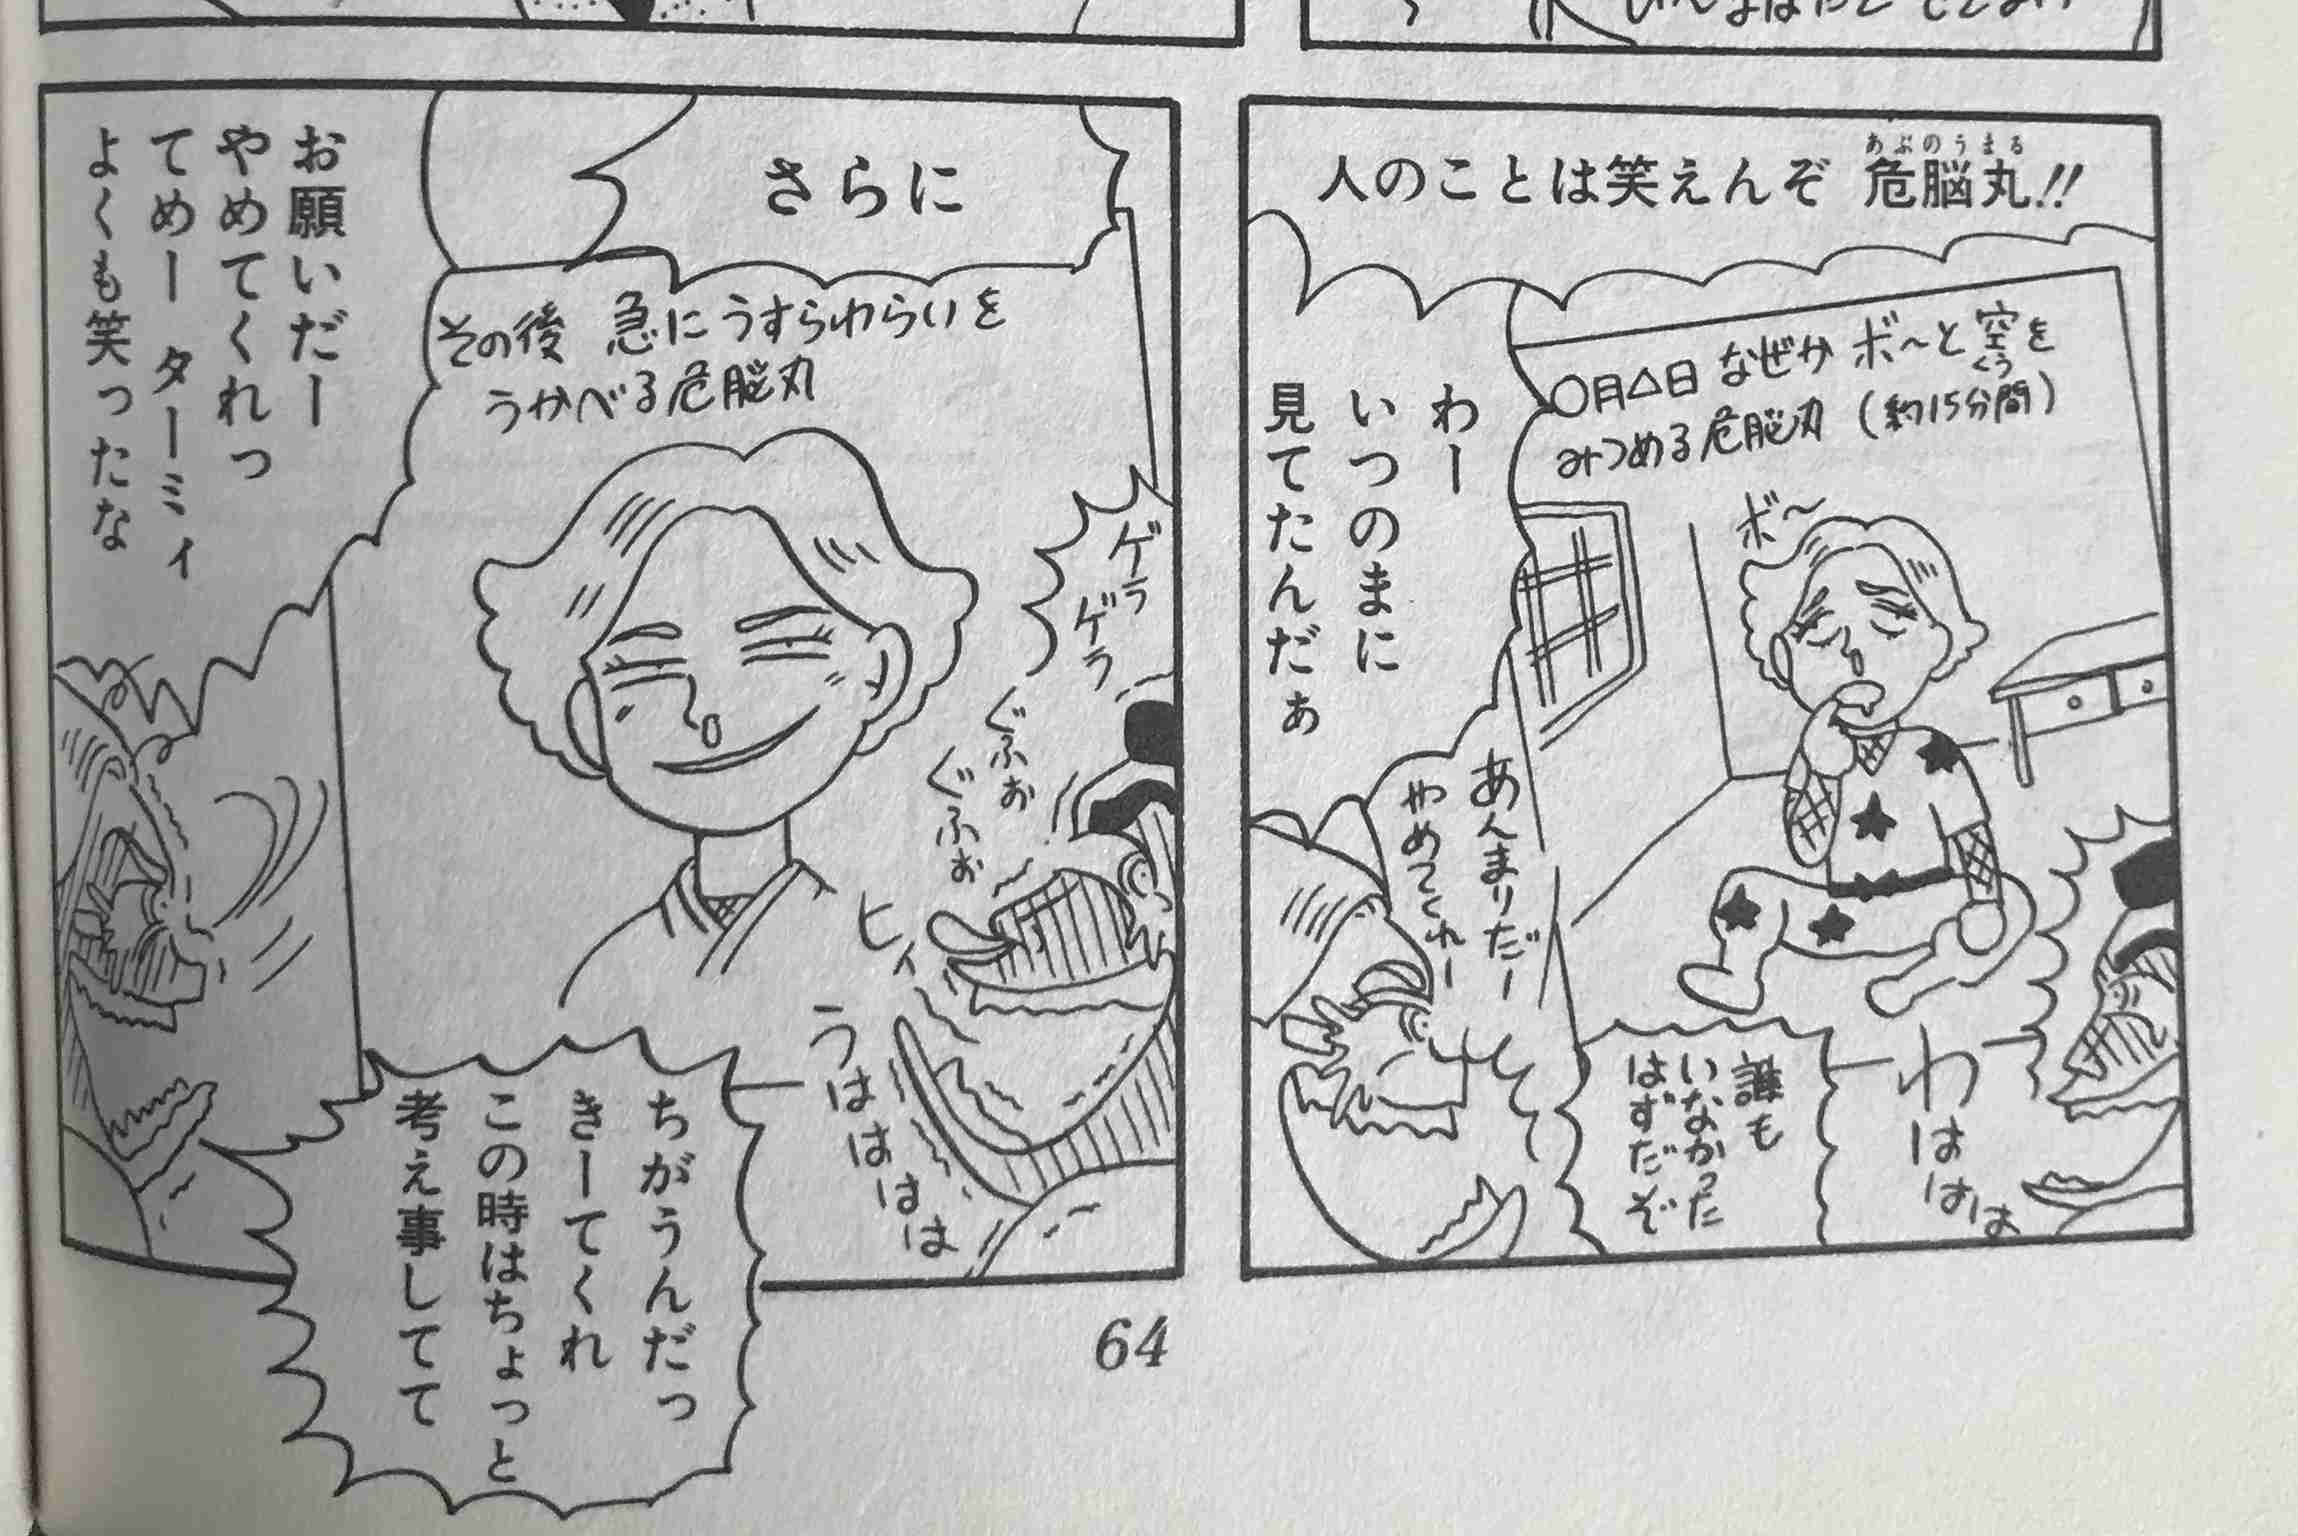 人のことは笑えんぞ 危脳丸!!
あぶのうまる
〇月△日 なぜか ボ〜と空を
くう
みつめる危脳丸 (約15分間)
ボ〜
わー
いつのまに
見てたんだぁ
あんまりだー
やめてくれー
誰も
いなかった
はずだぞ
わははは
さらに
その後 急にうすらわらいを
うかべる危脳丸
ゲラ
ゲラ
ぐふぉ
ぐふぉ
ヒィ
うはははは
お願いだー
やめてくれっ
てめー ターミィ
よくも笑ったな
ちがうんだっ
きーてくれ
この時はちょっと
考え事してて
64